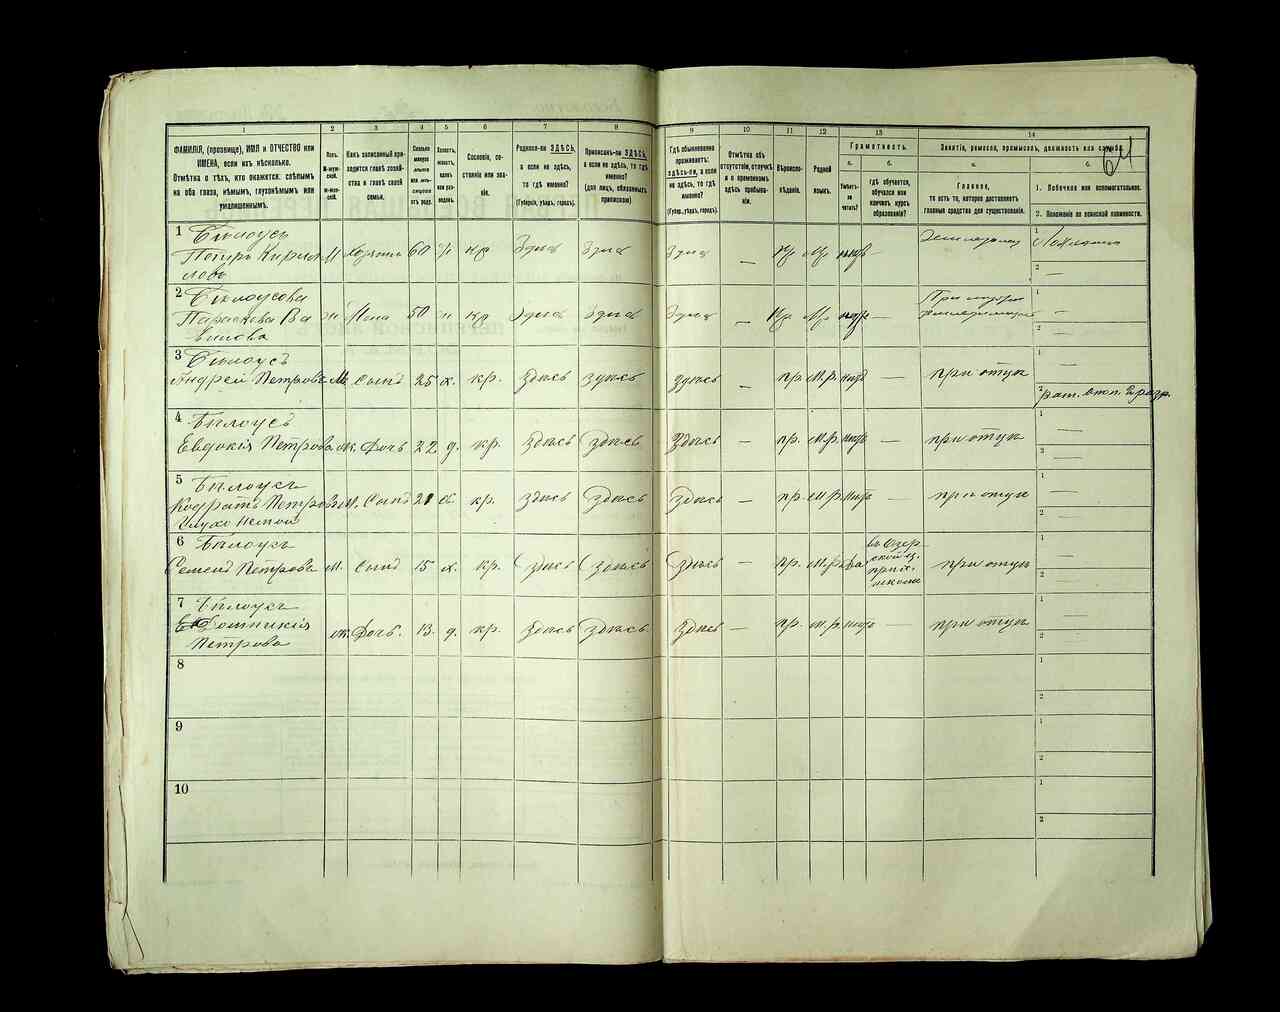 64
1 2 3 4 5 6 7 8 9 10 11 12 13 14
ФАМИЛІЯ, (прозвище), ИМЯ и ОТЧЕСТВО или
ИМЕНА, если ихъ нѣсколько.
Отмѣтка о тѣхъ, кто окажется: слѣпымъ
на оба глаза, нѣмымъ, глухонѣмымъ или
умалишеннымъ.
Полъ.
М-муж-
ской.
Ж-жен-
скій.
Какъ записанный при-
ходится главѣ хозяй-
ства и главѣ своей
семьи.
Сколько
минуло
лѣтъ
или мѣ-
сяцевъ
отъ роду.
Холостъ,
женатъ,
вдовъ
или раз-
веденъ.
Сословіе, со-
стояніе или зва-
ніе.
Родился-ли ЗДѢСЬ,
а если не здѣсь,
то гдѣ именно?
(Губернія, уѣздъ, городъ).
Приписанъ-ли ЗДѢСЬ,
а если не здѣсь, то гдѣ
именно?
(для лицъ, обязанныхъ
припискою)
Гдѣ обыкновенно
проживаетъ:
здѣсь-ли, а если
не здѣсь, то гдѣ
именно?
(Губер., уѣздъ, городъ).
Отмѣтка объ
отсутствіи, отлучкѣ
и о временномъ
здѣсь пребыва-
ніи.
Вѣроиспо-
вѣданіе.
Родной
языкъ.
Грамотность.
а. б.
Умѣетъ-
ли
читать?
гдѣ обучается,
обучался или
кончилъ курсъ
образованія?
Занятія, ремесло, промыселъ, должность или служба.
а. б.
Главное,
то есть то, которое доставляетъ
главныя средства для существованія.
1. Побочное или вспомогательное.
2. Положеніе по воинской повинности.
1 Бѣлоусъ
Петръ Кирил М Хозяинъ 60 кр
лов
2 Бѣлоусова
Параскева Ва Жена 50 кр
силова
3 Бѣлоусъ
Андрей Петровъ М. Сынъ 25 х. кр. здѣсь здѣсь здѣсь — пр. М.р. нѣтъ — при отцѣ
2 рат. опол. 2 разр.
4 Бѣлоусъ
Евдокія Петрова ж. Дочь 22 д. кр. здѣсь здѣсь здѣсь — пр. М.р. нѣтъ — при отцѣ
5 Бѣлоусъ
Кодратъ Петровъ М. Сынъ 21 х. кр. здѣсь здѣсь здѣсь — пр. М.р. нѣтъ — при отцѣ
Глухо Немой
6 Бѣлоусъ
Семенъ Петрова М. Сынъ 15 х. кр. здѣсь здѣсь здѣсь — пр. М.р. да въ Озер
ской ц.
прих.
школѣ при отцѣ
7 Бѣлоусъ
Домникія
Петрова ж. Дочь. 13. д. кр. здѣсь здѣсь здѣсь — пр. М.р. нѣтъ — при отцѣ
8
9
10